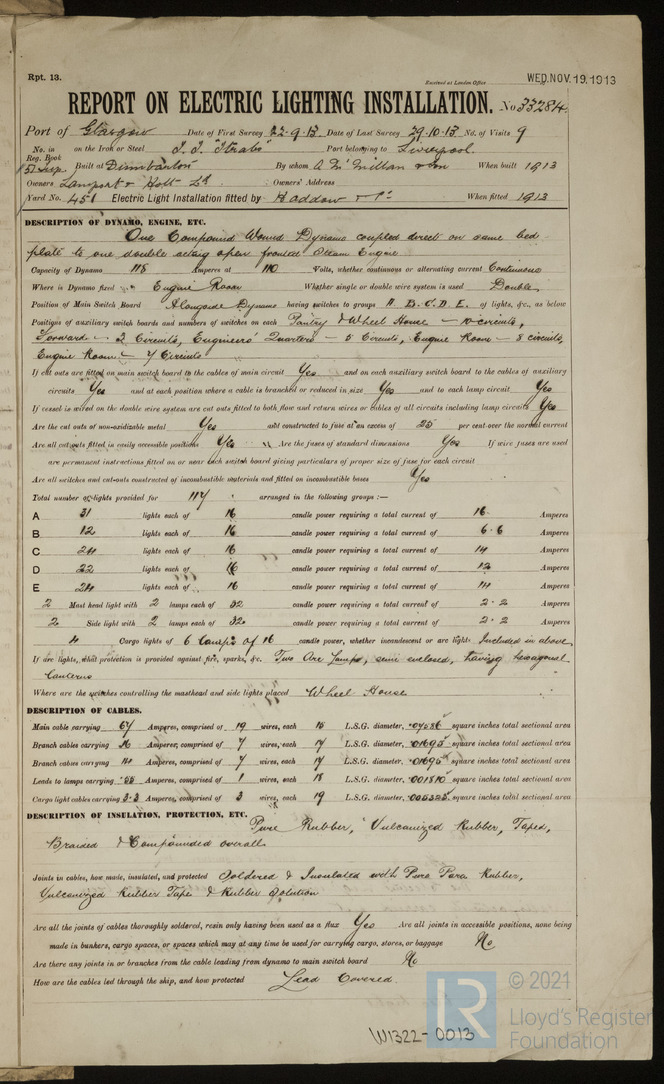 Rpt. 13.
Received at London Office WED. NOV. 19. 1913
REPORT ON ELECTRIC LIGHTING INSTALLATION. No 33284
Port of Glasgow Date of First Survey 22-9-13 Date of Last Survey 29-10-13 No. of Visits 9
No. in Reg. Book on the Iron or Steel "Strabo" Port belonging to Liverpool
Built at Dumbarton By whom A. McMillan & Son When built 1913
Owners Lamport & Holt Ld Owners' Address
Yard No. 451 Electric Light Installation fitted by Haddow & Co When fitted 1913
DESCRIPTION OF DYNAMO, ENGINE, ETC.
One Compound Wound Dynamo coupled direct on same bed
plate to one double acting open fronted Steam Engine
Capacity of Dynamo 118 Amperes at 110 Volts, whether continuous or alternating current Continuous
Where is Dynamo fixed Engine Room Whether single or double wire system is used Double
Position of Main Switch Board Alongside Dynamo having switches to groups A. B. C. D. E. of lights, &c., as below
Positions of auxiliary switch boards and numbers of switches on each Pantry & Wheel House - 10 circuits,
Forward - 2 Circuits, Engineers' Quarters - 5 Circuits, Engine Room - 5 circuits,
Engine Room - 7 Circuits
If cut outs are fitted on main switch board to the cables of main circuit Yes and on each auxiliary switch board to the cables of auxiliary
circuits Yes and at each position where a cable is branched or reduced in size Yes and to each lamp circuit Yes
If vessel is wired on the double wire system are cut outs fitted to both flow and return wires or cables of all circuits including lamp circuits Yes
Are the cut outs of non-oxidizable metal Yes and constructed to fuse at an excess of 25 per cent over the normal current
Are all cut outs fitted in easily accessible positions Yes Are the fuses of standard dimensions Yes If wire fuses are used
are permanent instructions fitted on or near each switch board giving particulars of proper size of fuse for each circuit
Are all switches and cut-outs constructed of incombustible materials and fitted on incombustible bases Yes
Total number of lights provided for 117 arranged in the following groups :—
A 31 lights each of 16 candle power requiring a total current of 16. Amperes
B 12 lights each of 16 candle power requiring a total current of 6.6 Amperes
C 24 lights each of 16 candle power requiring a total current of 14 Amperes
D 22 lights each of 16 candle power requiring a total current of 12 Amperes
E 24 lights each of 16 candle power requiring a total current of 14 Amperes
2 Mast head light with 2 lamps each of 32 candle power requiring a total current of 2.2 Amperes
2 Side light with 2 lamps each of 32 candle power requiring a total current of 2.2 Amperes
4 Cargo lights of 6 Lamps of 16 candle power, whether incandescent or arc lights Included in above
If arc lights, what protection is provided against fire, sparks, &c. Two Arc Lamps, semi enclosed, having hexagonal
Lanterns
Where are the switches controlling the masthead and side lights placed Wheel House
DESCRIPTION OF CABLES.
Main cable carrying 67 Amperes, comprised of 19 wires, each 15 L.S.G. diameter, .07586 square inches total sectional area
Branch cables carrying 26 Amperes, comprised of 7 wires, each 17 L.S.G. diameter, .01695 square inches total sectional area
Branch cables carrying 14 Amperes, comprised of 7 wires, each 17 L.S.G. diameter, .01695 square inches total sectional area
Leads to lamps carrying .55 Amperes, comprised of 1 wires, each 18 L.S.G. diameter, .001810 square inches total sectional area
Cargo light cables carrying 3.3 Amperes, comprised of 3 wires, each 19 L.S.G. diameter, square inches total sectional area
DESCRIPTION OF INSULATION, PROTECTION, ETC.
Pure Rubber, Vulcanized Rubber, Taped,
Braided & Compounded overall
Joints in cables, how made, insulated, and protected Soldered & Insulated with Pure Para Rubber,
Vulcanized Rubber Tape & Rubber Solution
Are all the joints of cables thoroughly soldered, resin only having been used as a flux Yes Are all joints in accessible positions, none being
made in bunkers, cargo spaces, or spaces which may at any time be used for carrying cargo, stores, or baggage No
Are there any joints in or branches from the cable leading from dynamo to main switch board No
How are the cables led through the ship, and how protected Lead Covered
W1322-0013
LR © 2021
Lloyd's Register
Foundation